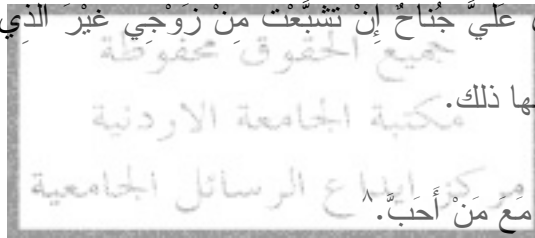 عَلَيَّ جُنَاحٌ إِنْ تَشَبَّعْت مِنْ زَوْجِي غَيْرَ الذِي
جميع الحقوق محفوظة
ها ذلك.
مكتبة الجامعة الاردنية
مركز ايداع الرسائل الجامعية
مَعَ مَنْ أَحَبَّ.٨